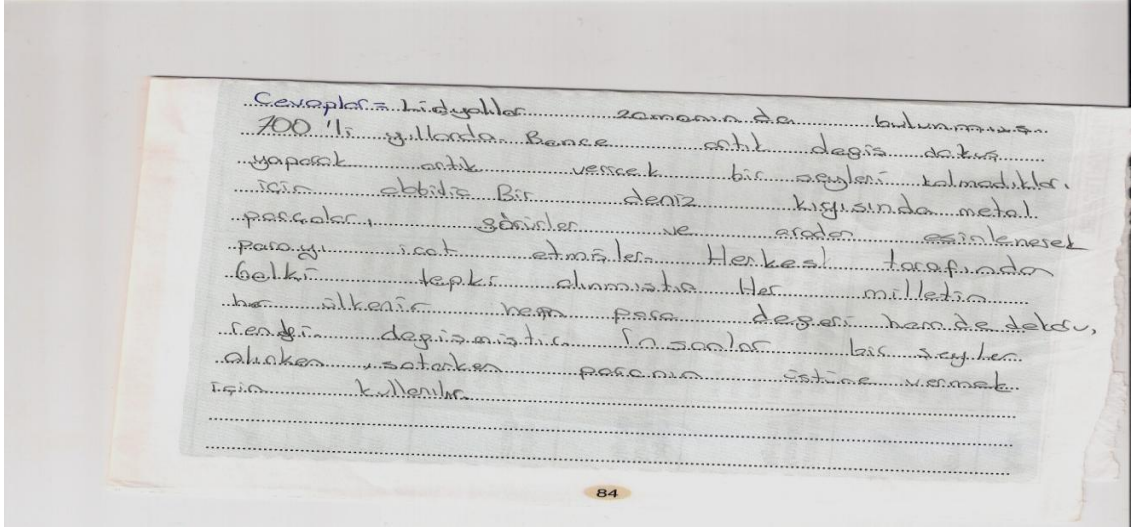 Cevaplar = Lidyalılar zamanında bulunmuş.
700'lü yıllarda. Bence artık degiş dokuş
yaparak artık vericek bir şeyleri kalmadıkları
için ebbidir. Bir deniz kıyısında metal
parçaları görürler ve arada esinlenerek
parayı icat etmişler. Herkesl tarafından
belki tepki alınmıstır Her milletin
her ülkenir hem para degeri hem de dekoru,
rengi degişmiştir. İnsanlar bir şeyler
alırken, satarken paranın üstüne vermek
için kullanılır.
84